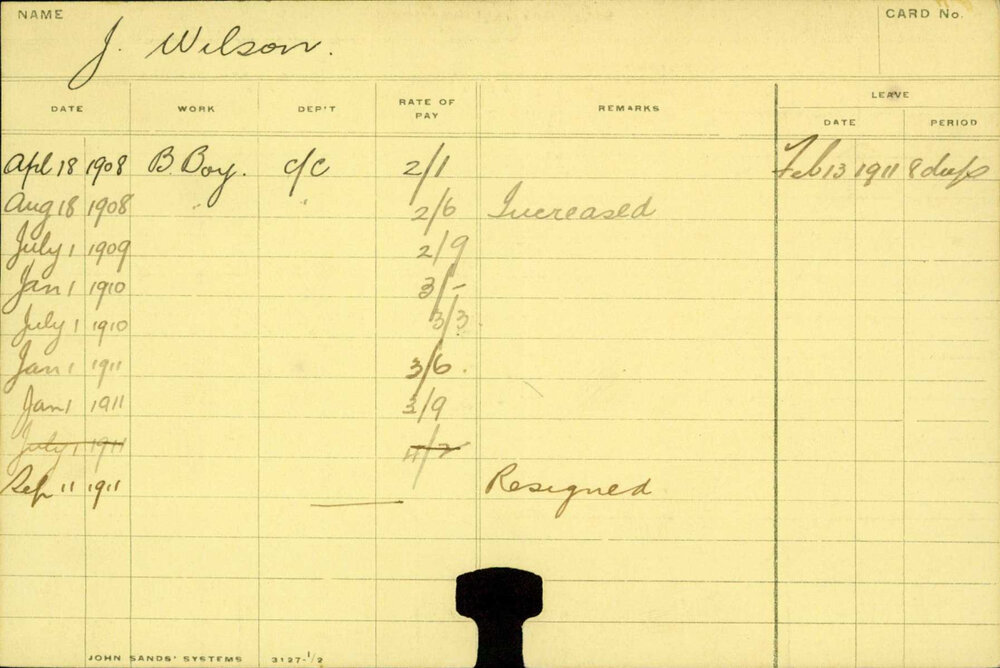 NAME J. Wilson. CARD No.
DATE WORK DEP'T RATE OF PAY REMARKS LEAVE
DATE PERIOD
Apl 18 1908 B. Boy. c/c 2/1 Feb 13 1911 8 days
Aug 18 1908 " " 2/6 Increased
July 1 1909 2/9
Jan 1 1910 3/-
July 1 1910 3/3
Jan 1 1911 3/6.
Jan 1 1911 3/9
July 1 1911
Sep 11 1911 Resigned
JOHN SANDS' SYSTEMS 3127-1/2